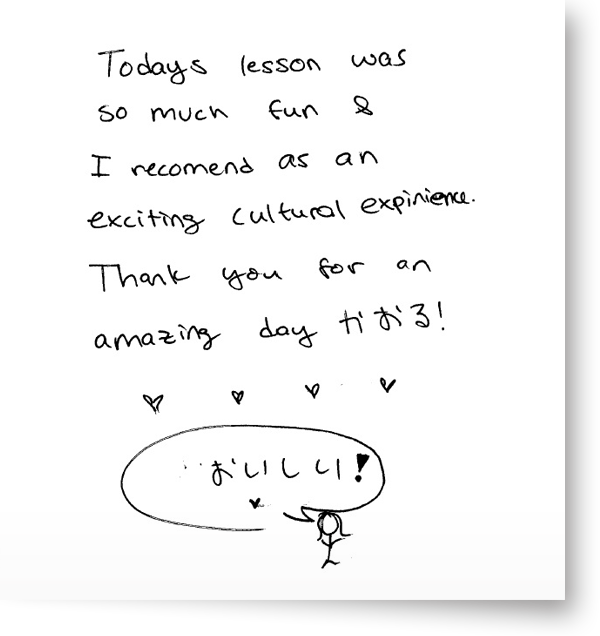 Todays lesson was
so much fun &
I recomend as an
exciting cultural expinience.
Thank you for an
amazing day かおる!
おいしい!